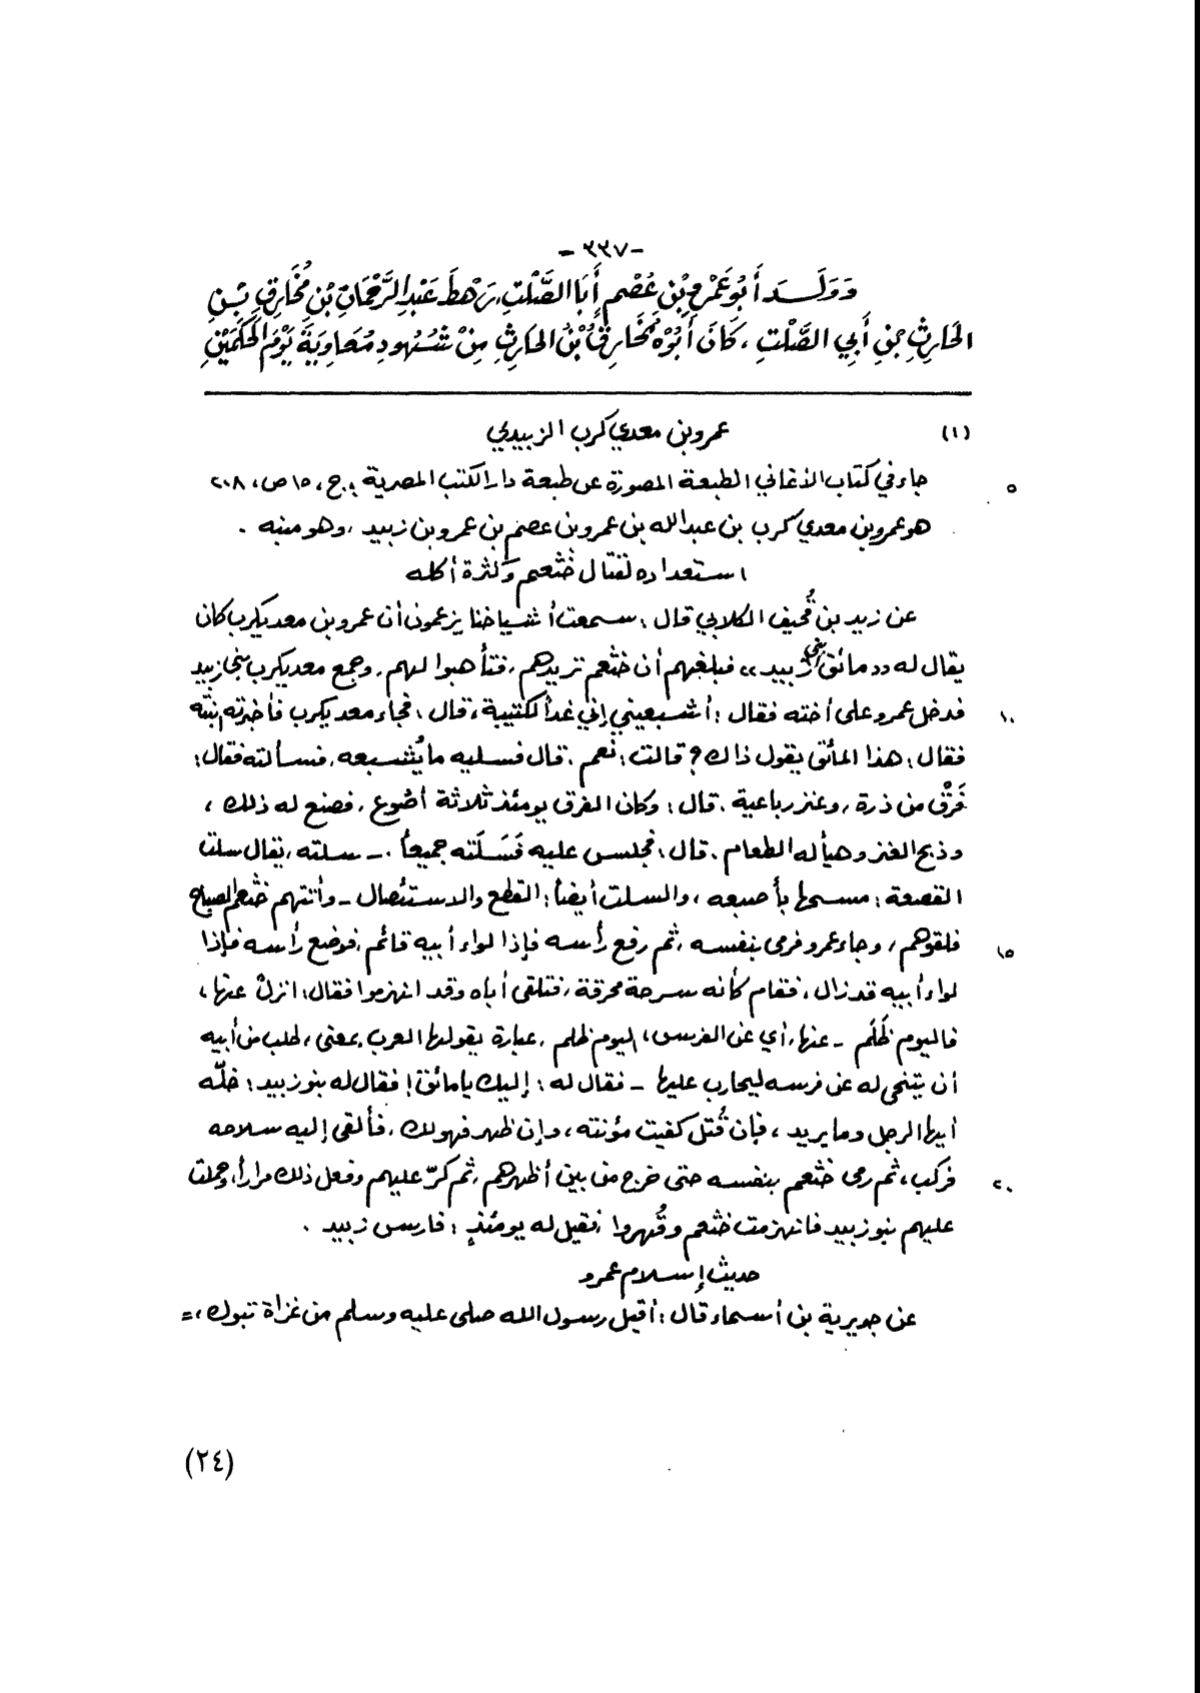 -٣٣٧-
وَوَلَـــدَ أَبُو عَمْرِو بْنِ عُصْمٍ أَبَا الصَّلْتِ، رَهْطَ عَبْدِ الرَّحْمَانِ بْنِ مُخَارِقِ بْـنِ
الحَارِثِ بْنِ أَبِي الصَّلْتِ، كَانَ أَبُوْهُ مُخَارِقُ بْنُ الحَارِثِ مِنْ شُهُودِ مُعَاوِيَةَ يَوْمَ الحَكَمَيْنِ
(١) عمرو بن معدي كرب الزبيدي
٥ جاء في كتاب الأغاني الطبعة المصورة عن طبعة دار الكتب المصرية، ج، ١٥ ص، ٢٠٨
هو عمرو بن معدي كرب بن عبدالله بن عمرو بن عصم بن عمرو بن زبيد، وهو منبه.
استعداده لقتال خَثْعم وكثرة أكله
عن زيد بن قُحيف الكلابي قال: سمعت أشياخنا يزعمون أن عمرو بن معديكرب كان
يقال له «مائق بني زُبيد» فبلغهم أن خثعم تريدهم، فتأهبوا لهم، وجمع معديكرب بني زبيد
١٠ فدخل عمرو على أخته فقال: أشبعيني إني غداً لكتيبة، قال: فجاء معديكرب فأخبرته ابنته
فقال: هذا المائق يقول ذاك؟ قالت: نعم. قال فسليه ما يُشبعه، فسألته فقال:
فَرْق من ذرة، وعنز رباعية. قال: وكان الفرق يومئذ ثلاثة أصْوع، فصنع له ذلك،
وذبح العنز وهيأ له الطعام. قال: فجلس عليه فَسَلَته جميعاً. ـ سلته، يقال سلت
القصعة: مسحها بأصبعه، والسلت أيضاً: القطع والاستئصال ـ وأتتهم خثعم الصباح
١٥ فلقوهم، وجاء عمرو فرمى بنفسه، ثم رفع رأسه فإذا لواء أبيه قائم، فوضع رأسه فإذا
لواء أبيه قد زال، فقام كأنه سرحة محرقة، فتلقى أباه وقد انهزموا فقال: انزل عنها،
فاليوم ظَلَم ـ عنها، أي عن الفرس، اليوم ظلم، عبارة يقولها العرب بمعنى، طلب من أبيه
أن يتنحى له عن فرسه ليحارب عليها ـ فقال له: إليك يا مائق! فقال له بنو زبيد: خلّه
أيها الرجل وما يريد، فإن قُتل كفيت مؤنته، وإن ظهر فهو لك. فألقى إليه سلاحه
٢٠ فركب، ثم رمى خثعم بنفسه حتى خرج من بين أظهرهم، ثم كرّ عليهم وفعل ذلك مراراً، وحملت
عليهم بنو زبيد فانهزمت خثعم وقُهروا فقيل له يومئذٍ: فارس زبيد.
حديث إسلام عمرو
عن جويرية بن أسماء قال: أقبل رسول الله صلى عليه وسلم من غزاة تبوك،=
(٢٤)